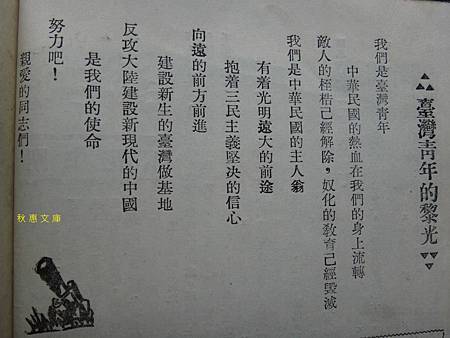 臺灣青年的黎光
我們是臺灣青年
中華民國的熱血在我們的身上流轉
敵人的桎梏己經解除，奴化的敎育己經毀滅
我們是中華民國的主人翁
有着光明遠大的前途
抱着三民主義堅决的信心
向遠的前方前進
建設新生的臺灣做基地
反攻大陸建設新現代的中國
是我們的使命
努力吧！
親愛的同志們！
秋惠文庫